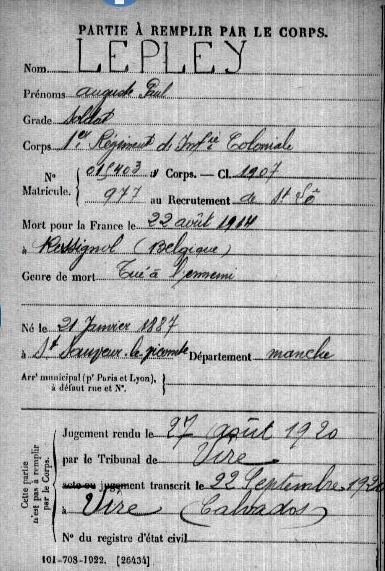 PARTIE À REMPLIR PAR LE CORPS.
Nom LEPLEY
Prénoms auguste Paul
Grade Soldat
Corps 1er Régiment d'Infie Coloniale
N° 019403 au Corps. — Cl. 1907
Matricule. 977 au Recrutement de St Lô
Mort pour la France le 22 août 1914
à Rossignol (Belgique)
Genre de mort Tué à l'ennemi
Né le 21 Janvier 1887
à St Sauveur-le-vicomte Département manche
Arrt municipal (pr Paris et Lyon), à défaut rue et N°.
Cette partie n'est pas à remplir par le Corps.
Jugement rendu le 27 août 1920
par le Tribunal de Vire
acte ou jugement transcrit le 22 Septembre 1920
à Vire (Calvados)
N° du registre d'état civil
101-708-1922. [26434]